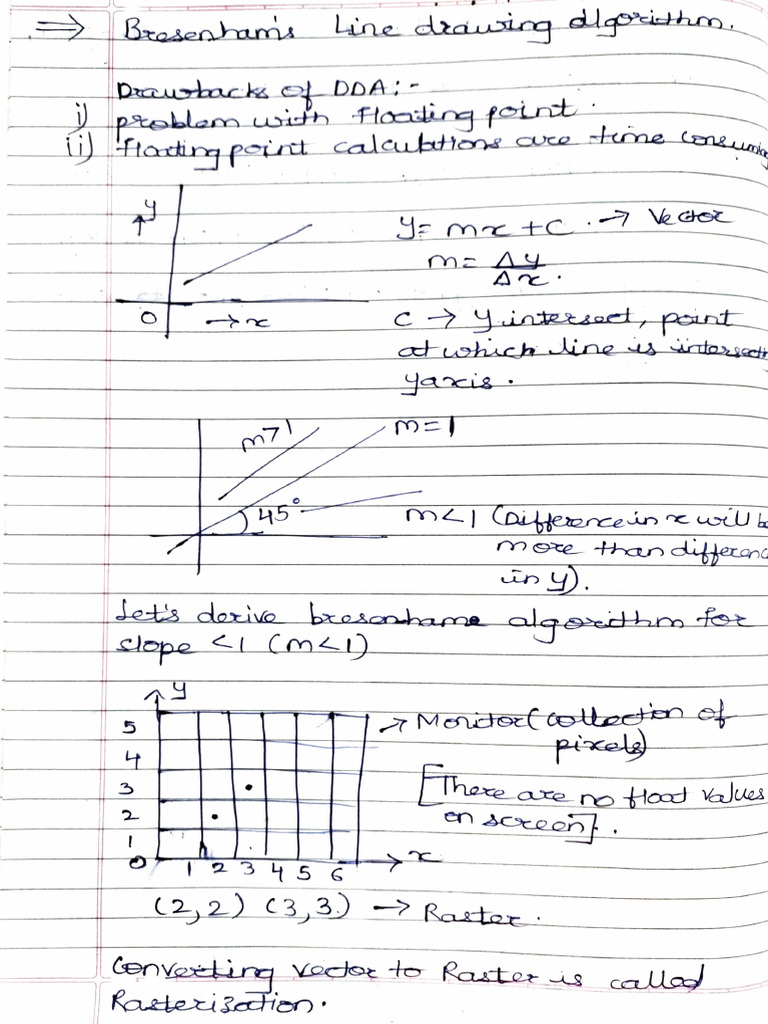 ⇒ Bresenham's Line drawing algorithm.
Drawbacks of DDA:-
i) problem with floating point.
ii) floating point calculations are time consuming
y
y = mx + c. → Vector
m = Δy
Δx.
O → x
c → y intersect, point
at which line is intersecti
y axis.
m>1 m=1
45°
m<1 (Difference in x will be
more than differenc
in y).
Let's derive bresenhame algorithm for
slope <1 (m<1)
y
5 → Monitor (collection of
pixels)
4
3 [There are no float values
2 on screen].
1
0 1 2 3 4 5 6 x
(2,2) (3,3) → Raster.
Converting vector to Raster is called
Rasterization.